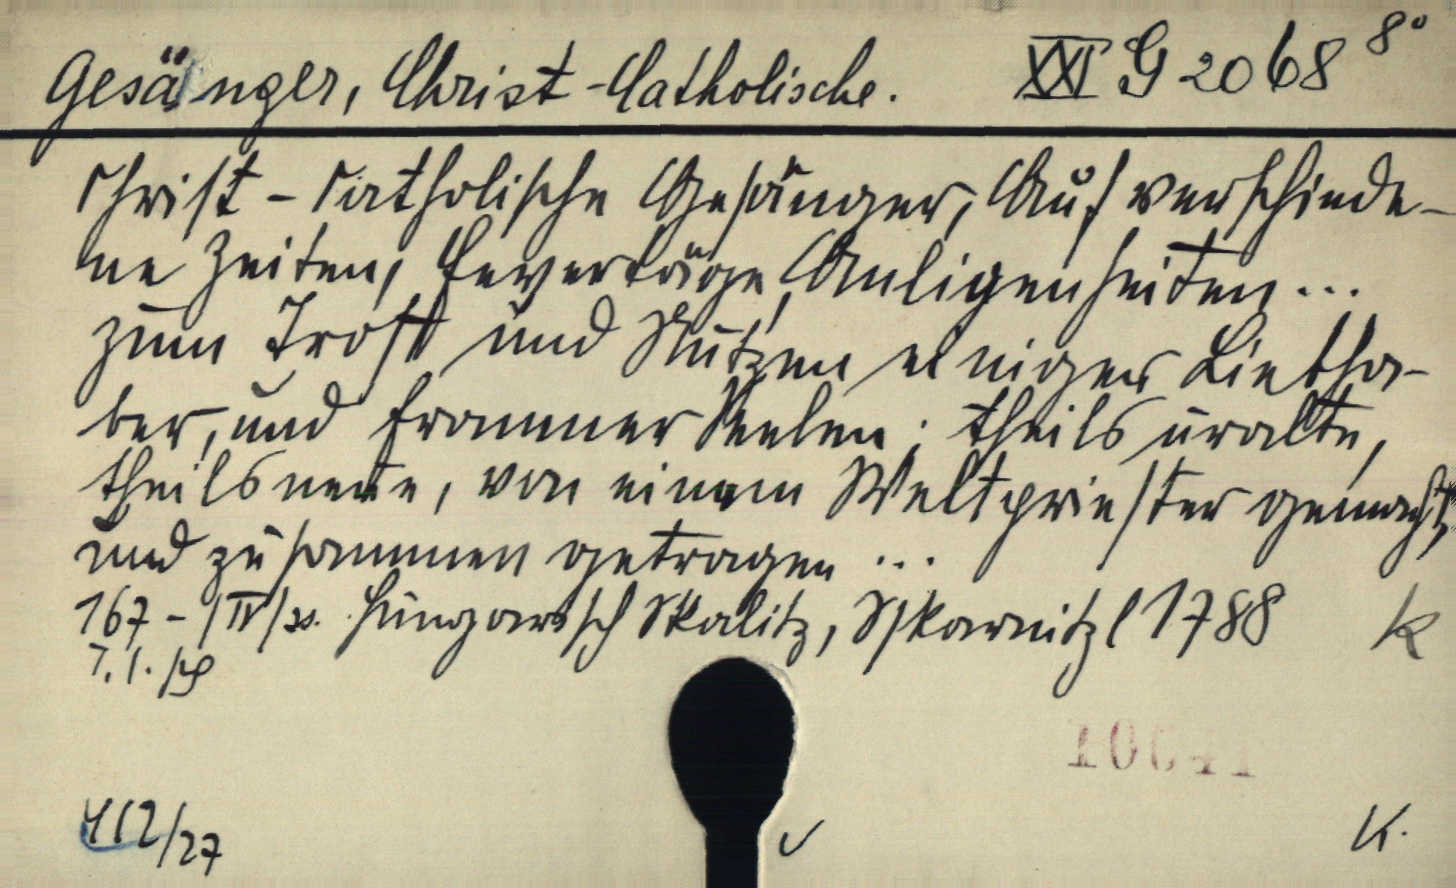 Gesänger, Christ-Catholische. XXI G 2068 8°
Christ-Catholische Gesänger, Auf verschiede-
ne Zeiten, Feyertäge, Anligenheiten ...
zum Trost und Nutzen einiger Liebha-
ber, und frommer Seelen; theils uralte,
theils neue, von einem Weltpriester gemacht,
und zusammen getragen ...
167 - Hungarisch Skalitz, Skarnitzl 1788 K
412/27
K.